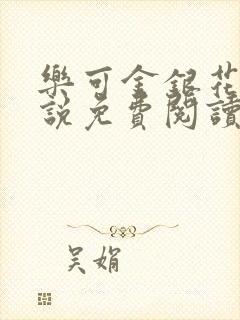 樂可金銀花
說免費閱讀
吴娟